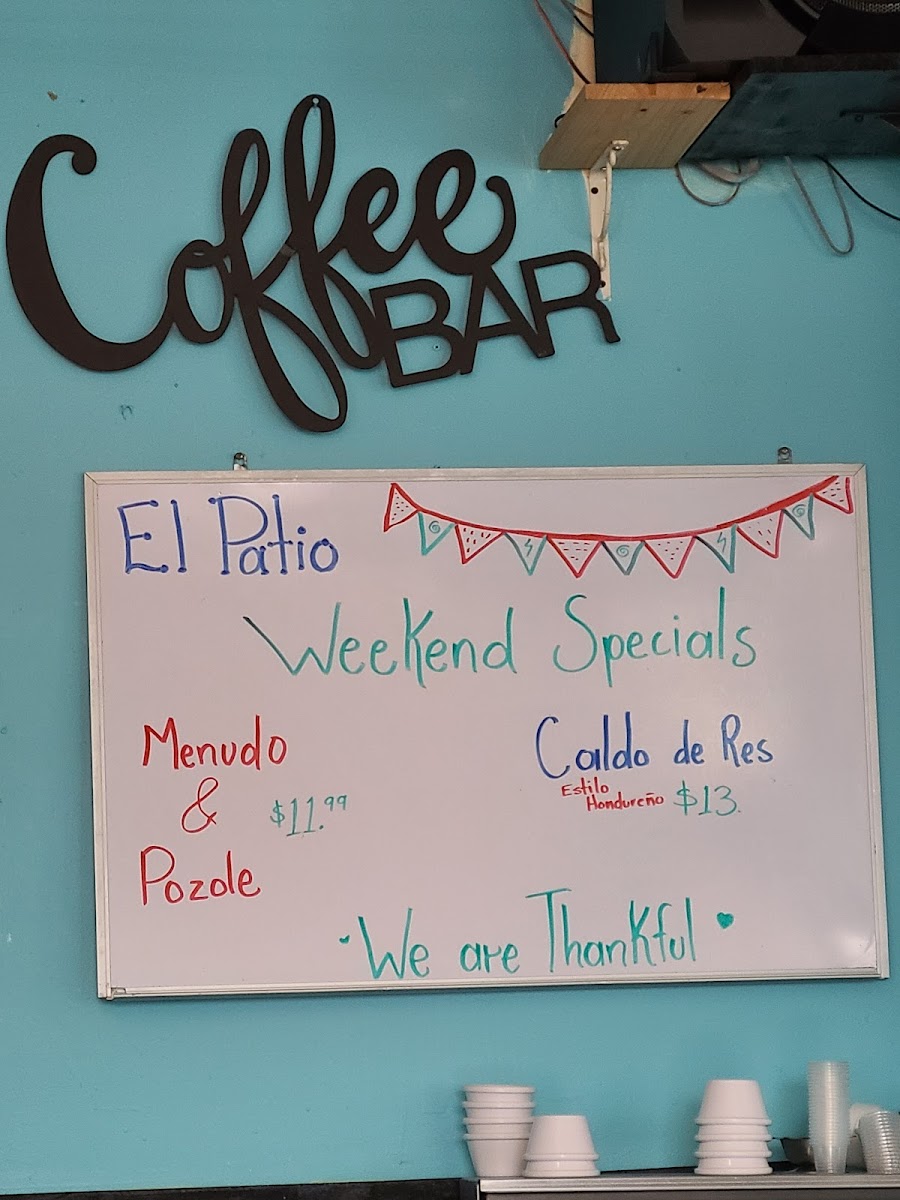 Coffee
BAR
El Patio
Weekend Specials
Menudo
& $11.99
Pozole
Caldo de Res
Estilo
Hondureño $13.
We are Thankful